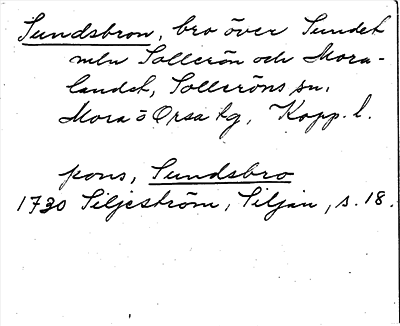 Sundsbron, bro över Sundet
mln Sollerön och Mora-
landet, Solleröns sn.
Mora o Orsa tg, Kopp. l.
pons, Sundsbro
1730 Siljeström, Siljan, s. 18.